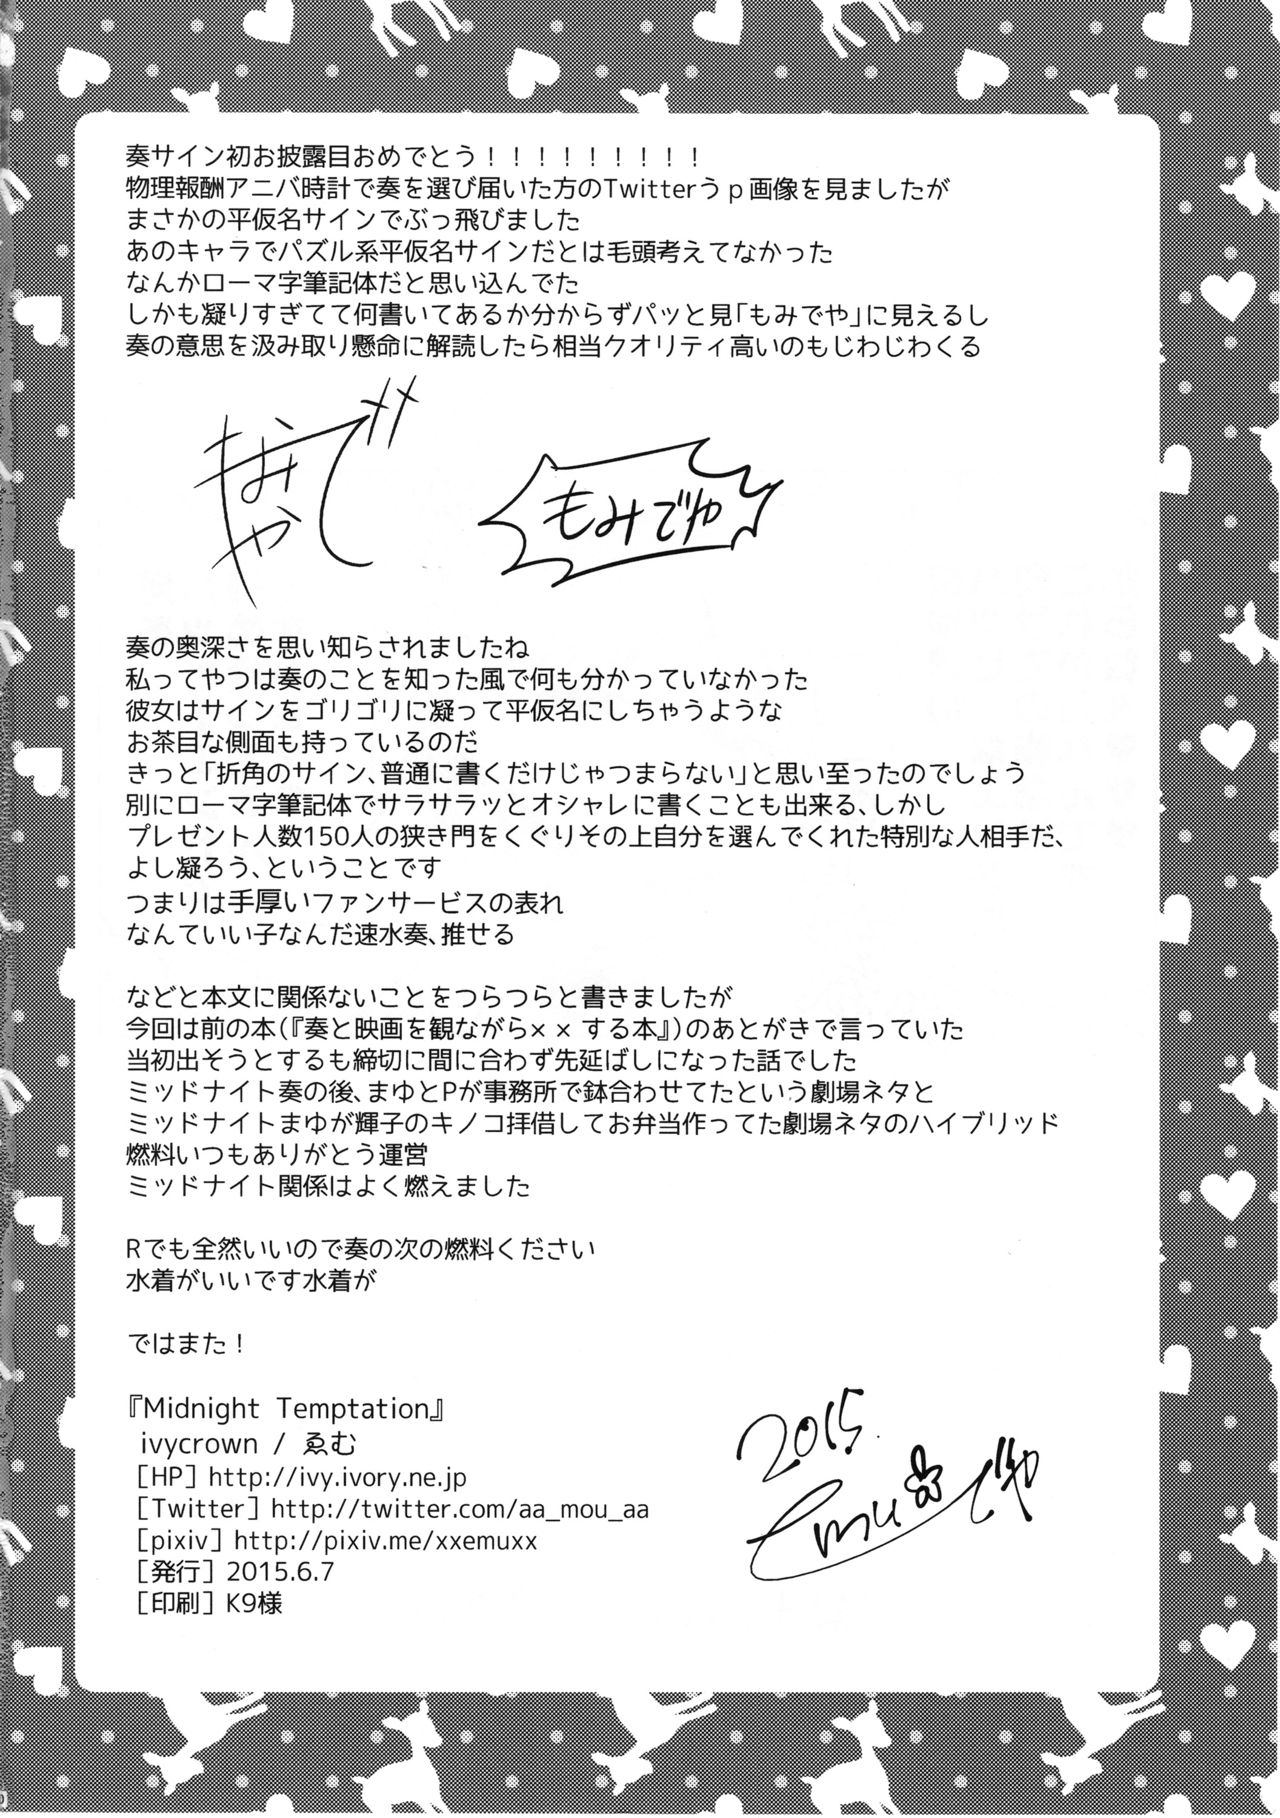 奏サイン初お披露目おめでとう！！！！！！！！！
物理報酬アニバ時計で奏を選び届いた方のTwitterうｐ画像を見ましたが
まさかの平仮名サインでぶっ飛びました
あのキャラでパズル系平仮名サインだとは毛頭考えてなかった
なんかローマ字筆記体だと思い込んでた
しかも凝りすぎてて何書いてあるか分からずパッと見「もみでや」に見えるし
奏の意思を汲み取り懸命に解読したら相当クオリティ高いのもじわじわくる
もみでや
奏の奥深さを思い知らされましたね
私ってやつは奏のことを知った風で何も分かっていなかった
彼女はサインをゴリゴリに凝って平仮名にしちゃうような
お茶目な側面も持っているのだ
きっと「折角のサイン、普通に書くだけじゃつまらない」と思い至ったのでしょう
別にローマ字筆記体でサラサラッとオシャレに書くことも出来る、しかし
プレゼント人数150人の狭き門をくぐりその上自分を選んでくれた特別な人相手だ、
よし凝ろう、ということです
つまりは手厚いファンサービスの表れ
なんていい子なんだ速水奏、推せる
などと本文に関係ないことをつらつらと書きましたが
今回は前の本（『奏と映画を観ながら××する本』）のあとがきで言っていた
当初出そうとするも締切に間に合わず先延ばしになった話でした
ミッドナイト奏の後、まゆとPが事務所で鉢合わせてたという劇場ネタと
ミッドナイトまゆが輝子のキノコ拝借してお弁当作ってた劇場ネタのハイブリッド
燃料いつもありがとう運営
ミッドナイト関係はよく燃えました
Rでも全然いいので奏の次の燃料ください
水着がいいです水着が
ではまた！
『Midnight Temptation』
ivycrown / ゑむ
［HP］http://ivy.ivory.ne.jp
［Twitter］http://twitter.com/aa_mou_aa
［pixiv］http://pixiv.me/xxemuxx
［発行］2015.6.7
［印刷］K9様
2015.
Emu でや